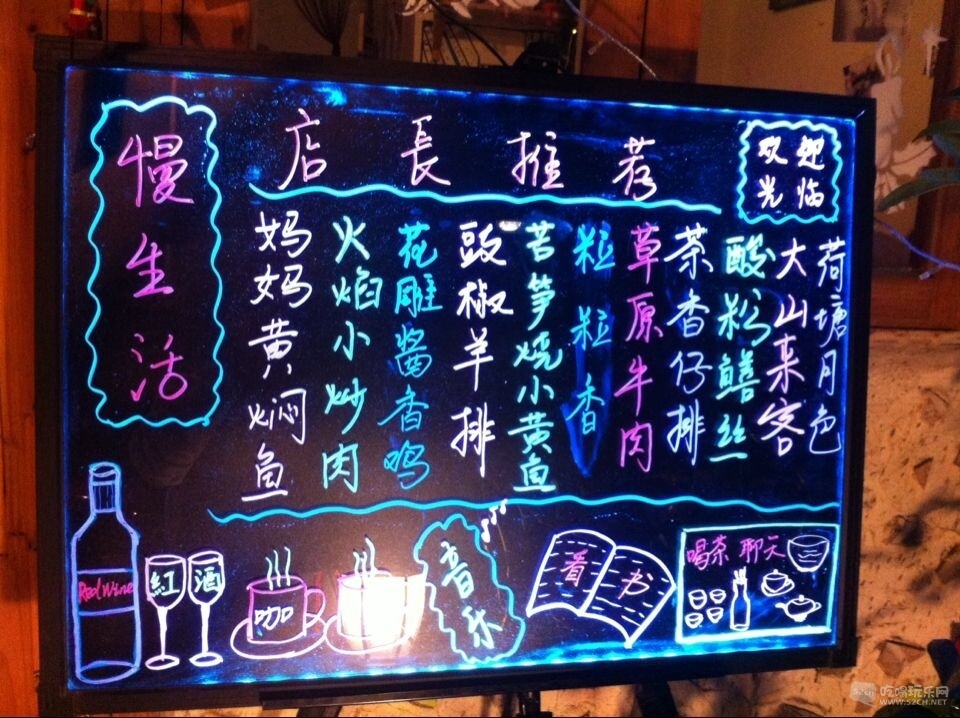 慢生活
店長推荐
欢迎
光临
妈妈黄焖鱼
火焰小炒肉
花雕醬香鸡
豉椒羊排
苦笋烧小黄鱼
粒粒香
草原牛肉
茶香仔排
酸粉鳝丝
大山来客
荷塘月色
Red Wine
紅酒
咖
音乐
看书
喝茶 聊天
吃喝玩乐网
WWW.52CH.NET